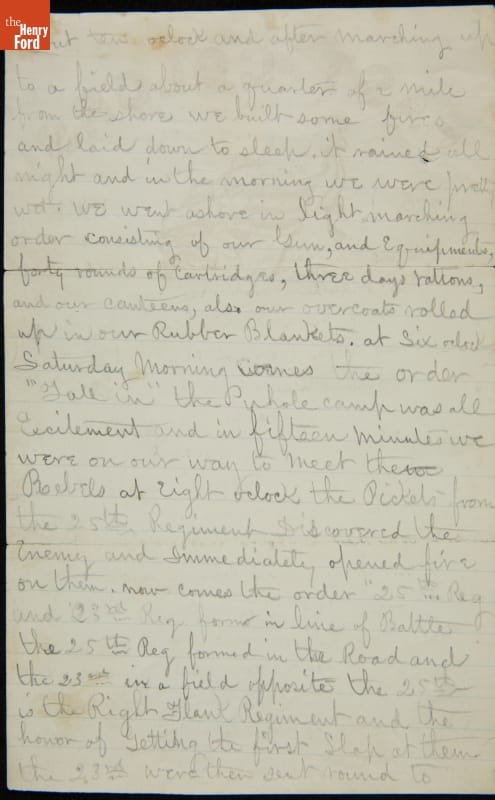 the
Henry
Ford
ten oclock and after marching up
to a field about a quarter of a mile
from the shore we built some fires
and laid down to sleep. it rained all
night and in the morning we were pretty
wet. we went ashore in light marching
order consisting of our Gun, and Equipments,
forty rounds of Cartridges, three days rations,
and our canteens, also our overcoats rolled
up in our Rubber Blankets. at Six oclock
Saturday Morning comes the order
"Fall in" the whole camp was all
Excitement and in fifteen minutes we
were on our way to meet the
Rebels at Eight oclock the Pickets from
the 25th Regiment Discovered the
Enemy and Immediately opened fire
on them. now comes the order "25th Reg
and 23rd Reg form in line of Battle
the 25th Reg formed in the Road and
the 23rd in a field opposite the 25th
is the Right Flank Regiment and the
honor of getting the first Slap at them
the 23rd were then sent round to